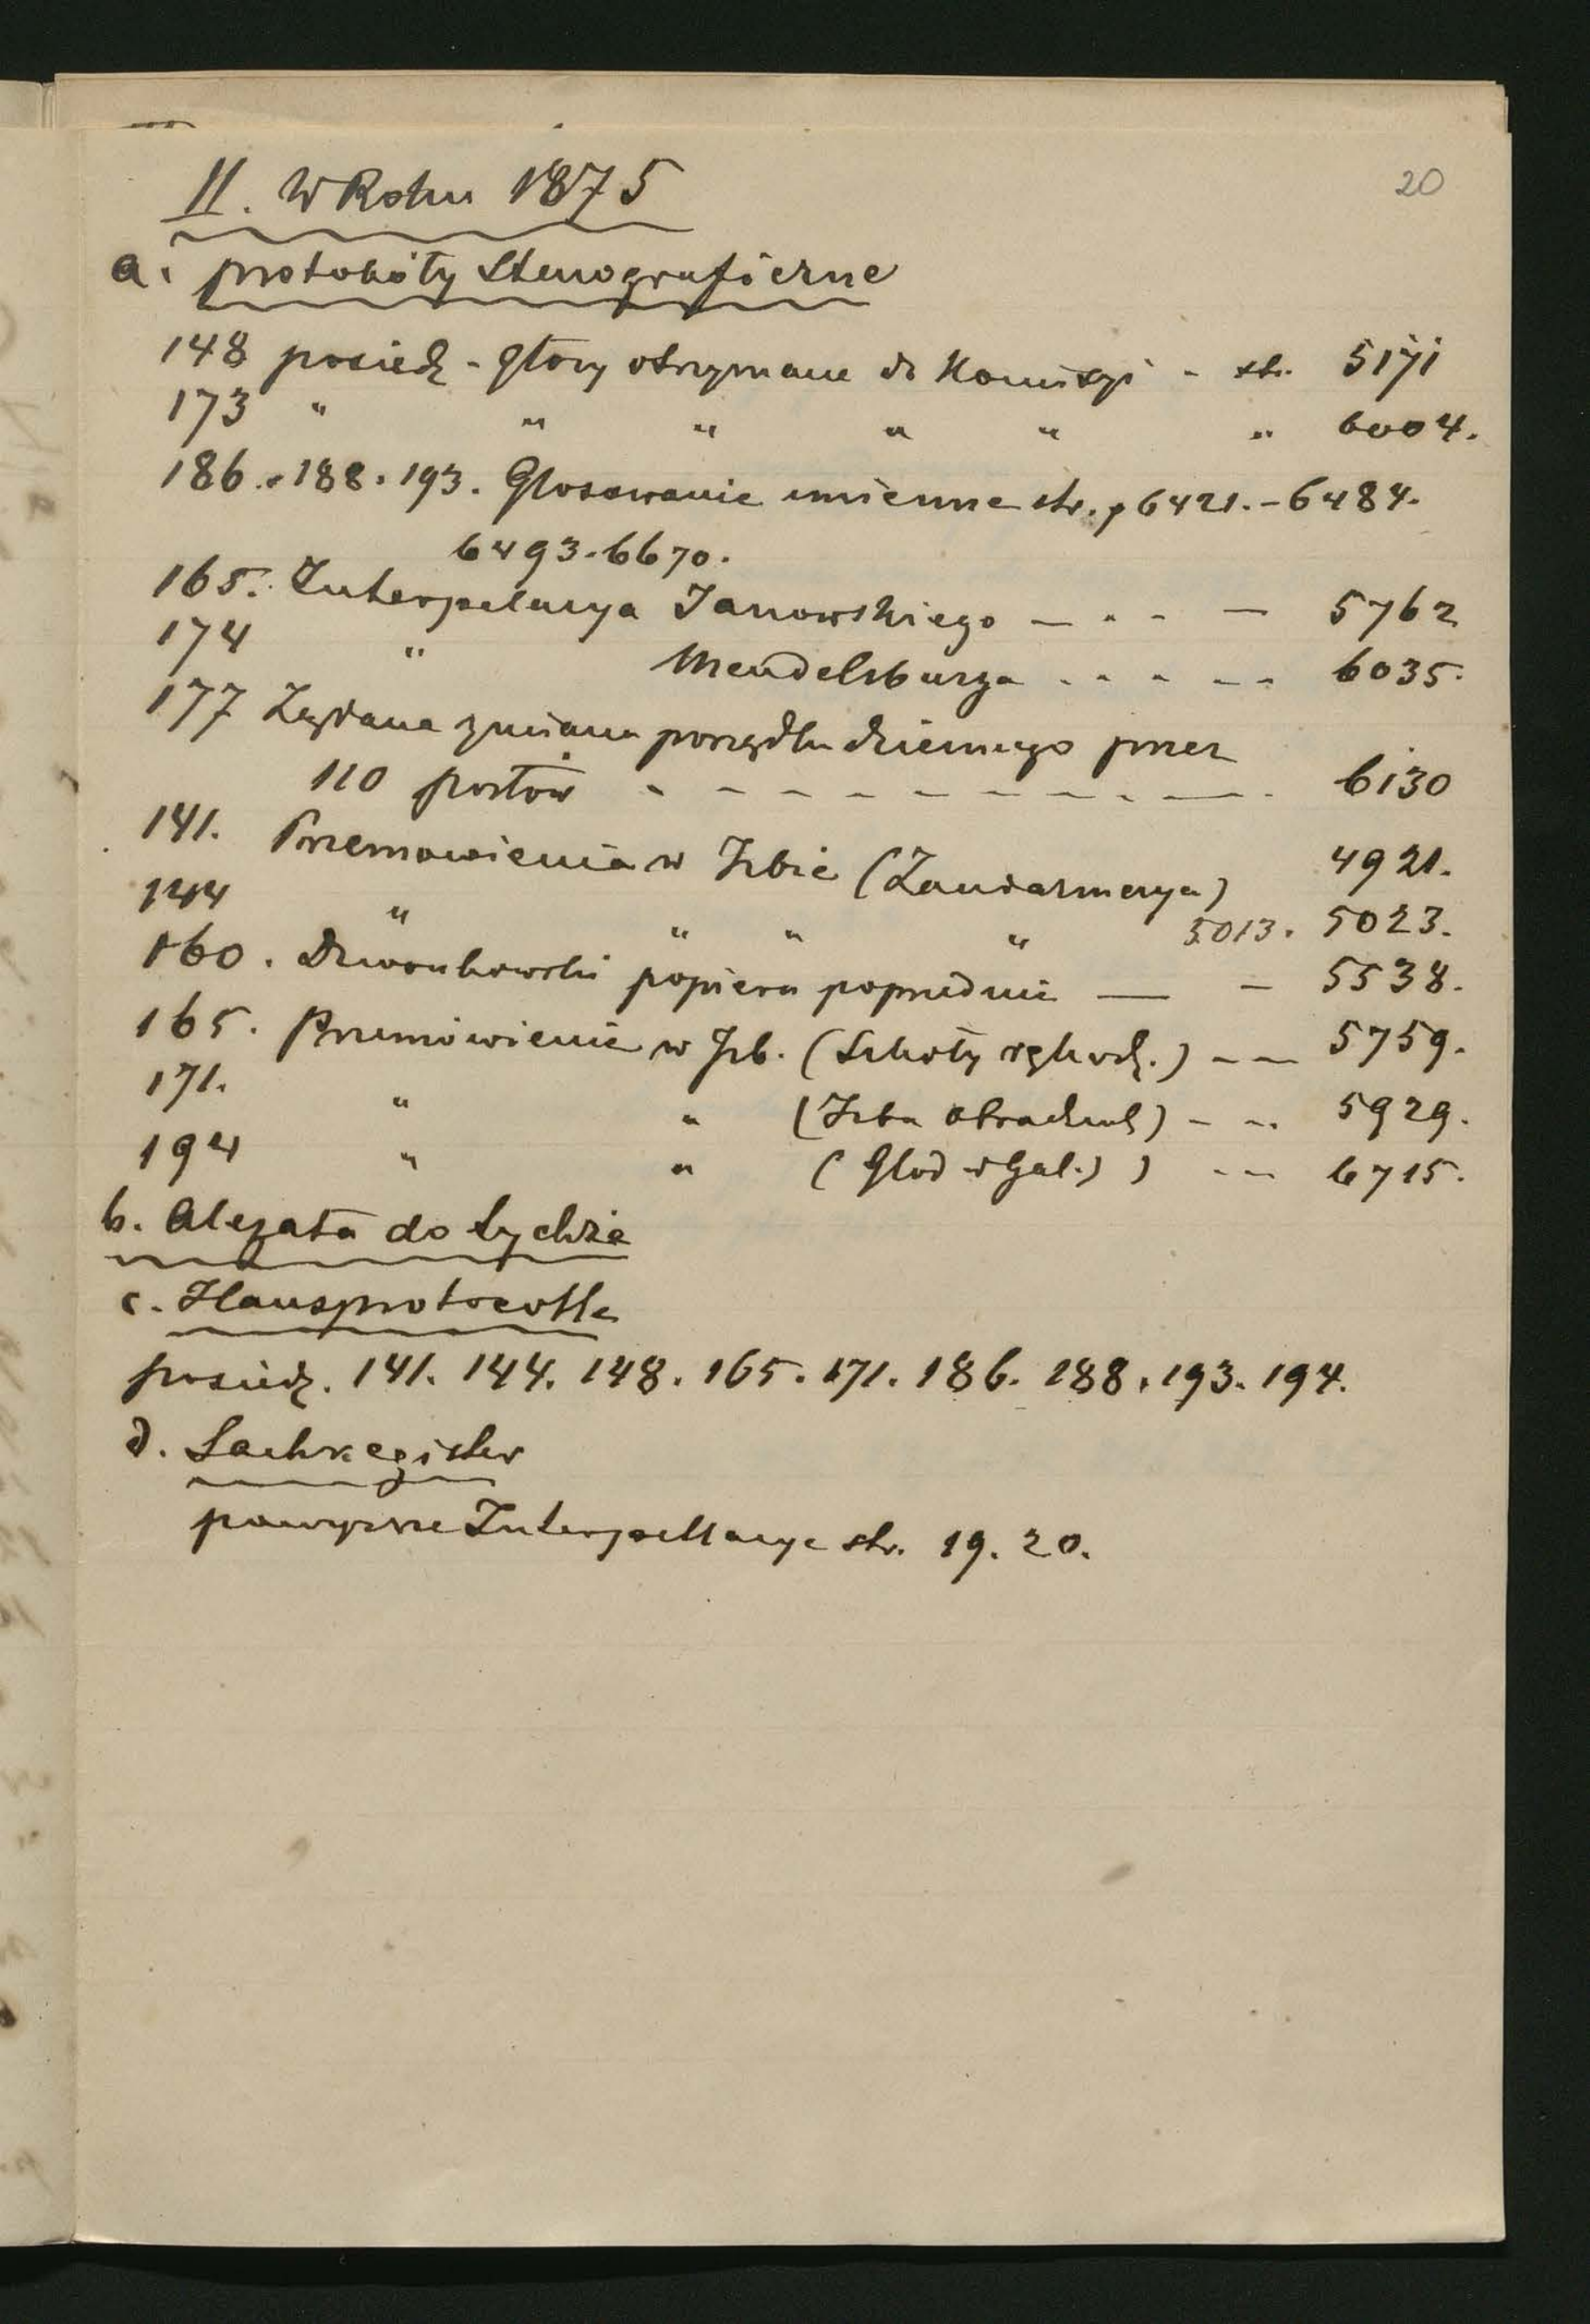 20
II. W Roku 1875
a. protokóły stenograficzne
148 posiedz - głosy otrzymane do Komisyi - str. 5171
173 " " " " " " 6004.
186. 188. 193. Głosowanie imienne str. 6421. - 6484.
6493. 6670.
165. Interpelacya Janowskiego — - - — 5762
174 " Mendelsburga - - - - - 6035.
177 Żądana zmiana porządku dziennego przez
110 posłów - - - - - - - - - - 6130
141. Przemowienia w Izbie (Żandarmerya) 4921.
144 " " " " 5013. 5023.
160. Dzwonkowski popiera poprzednie — - 5538.
165. Przemówienie w Izb. (Szkoły rękodz.) - — 5759.
171. " " (Izba obrachunk) - - 5929.
194 " " (Głód w Gal.) ) - - 6715.
b. Alegata do tychże
c. Hausprotocolle
posiedz. 141. 144. 148. 165. 171. 186. 188. 193. 194.
d. Sachregister
powyższe Interpellacye str. 19. 20.